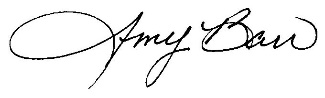 Amy Barr